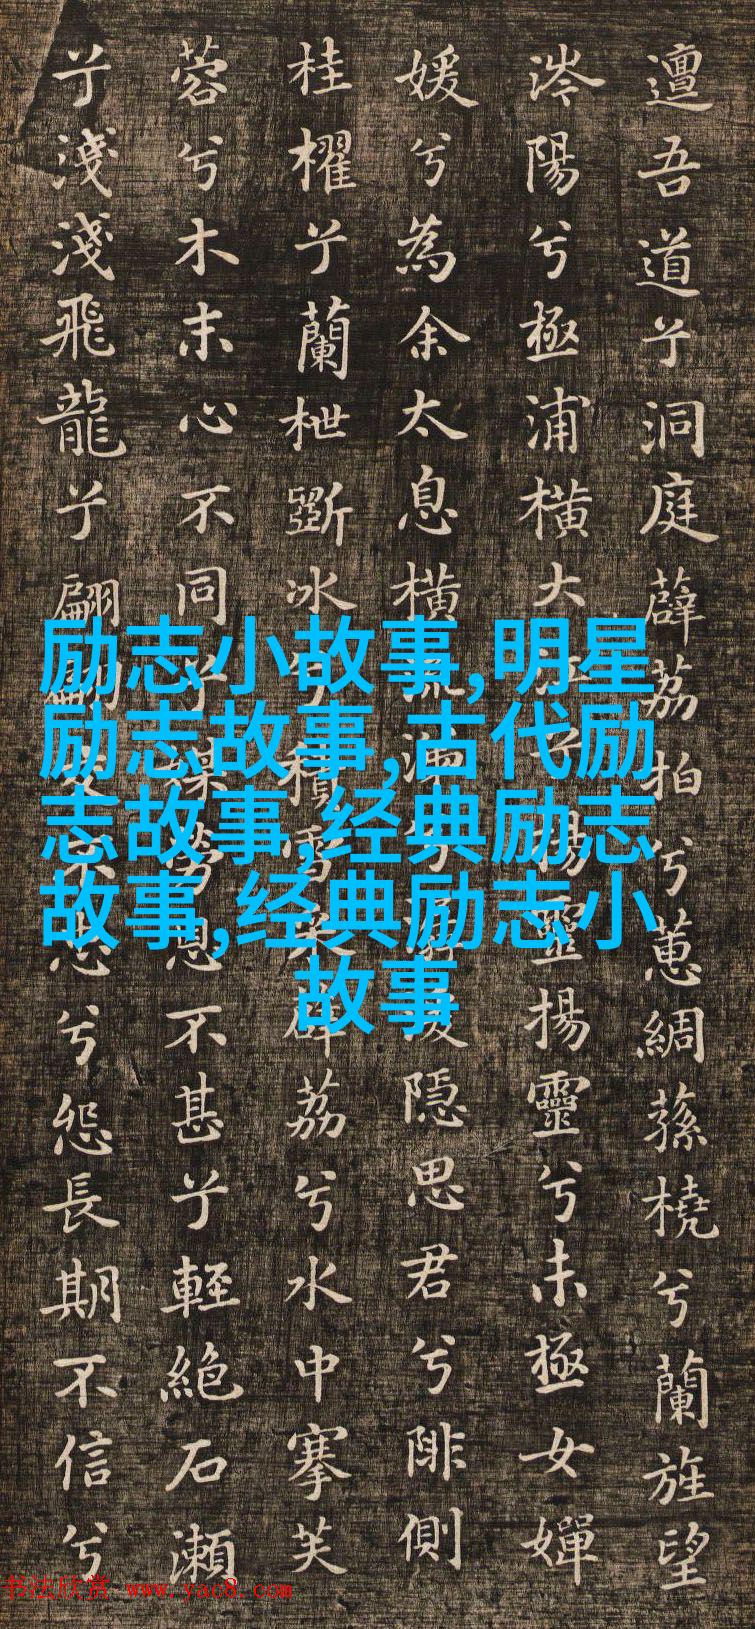 邅吾道兮洞庭薜荔拍兮蕙綢蓀橈兮蘭旌望
涔陽兮極浦橫大江兮揚靈揚靈兮未極女嬋
媛兮為余太息橫流涕兮潺湲隱思君兮陫側
桂櫂兮蘭枻斲冰兮積雪采薜荔兮水中搴芙
蓉兮木末心不同兮媒勞恩不甚兮輕絕石瀨
兮淺淺飛龍兮翩翩交不忠兮怨長期不信兮
励志小故事,明星
励志故事,古代励
志故事,经典励志
故事,经典励志小
故事
书法欣赏 www.yac8.com